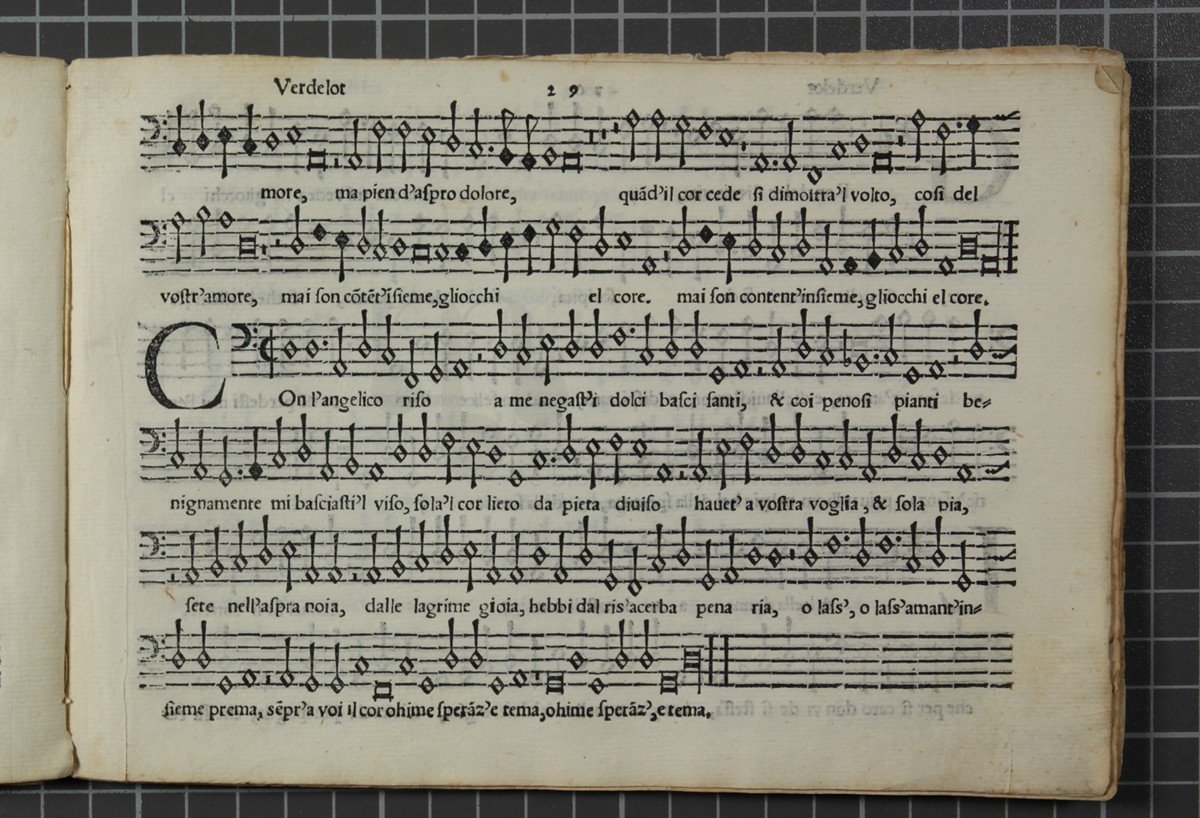 Verdelot 29
more, ma pien d'aſpro dolore, quãd'il cor cede ſi dimoſtra'l volto, coſi del
voſtr'amore, mai ſon cõtẽt'iſieme, gliocchi el core. mai ſon content'inſieme, gliocchi el core.
COn l'angelico riſo a me negaſt'i dolci baſci ſanti, & coi penoſi pianti be=
nignamente mi baſciaſti'l viſo, ſola'l cor lieto da pieta diuiſo hauet'a voſtra voglia, & ſola pia,
ſete nell'aſpra noia, dalle lagrime gioia, hebbi dal ris'acerba pena ria, o laſs', o laſs'amant'in=
ſieme prema, sẽpr'a voi il cor ohime ſperãz'e tema, ohime ſperãz', e tema.